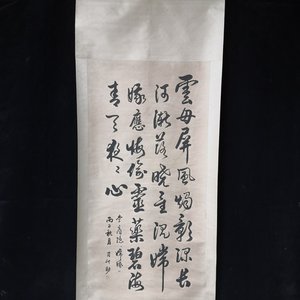 雲母屏風燭影深長
河漸落曉星沉嫦
娥應悔偷靈藥碧海
青天夜々心
李商隱 嫦娥
丙子秋月